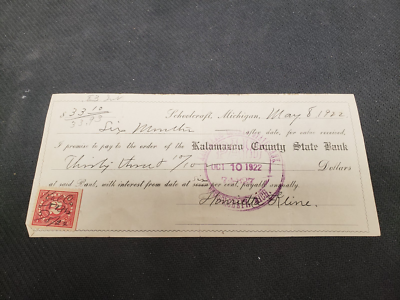 $ 33 10
Schoolcraft, Michigan, May 8 1922
Six Months after date, for value received,
I promise to pay to the order of the Kalamazoo County State Bank
Thirty three 10/100 Dollars
at said Bank, with interest from date at per cent, payable annually
OCT 10 1922
Henrietta Kline.